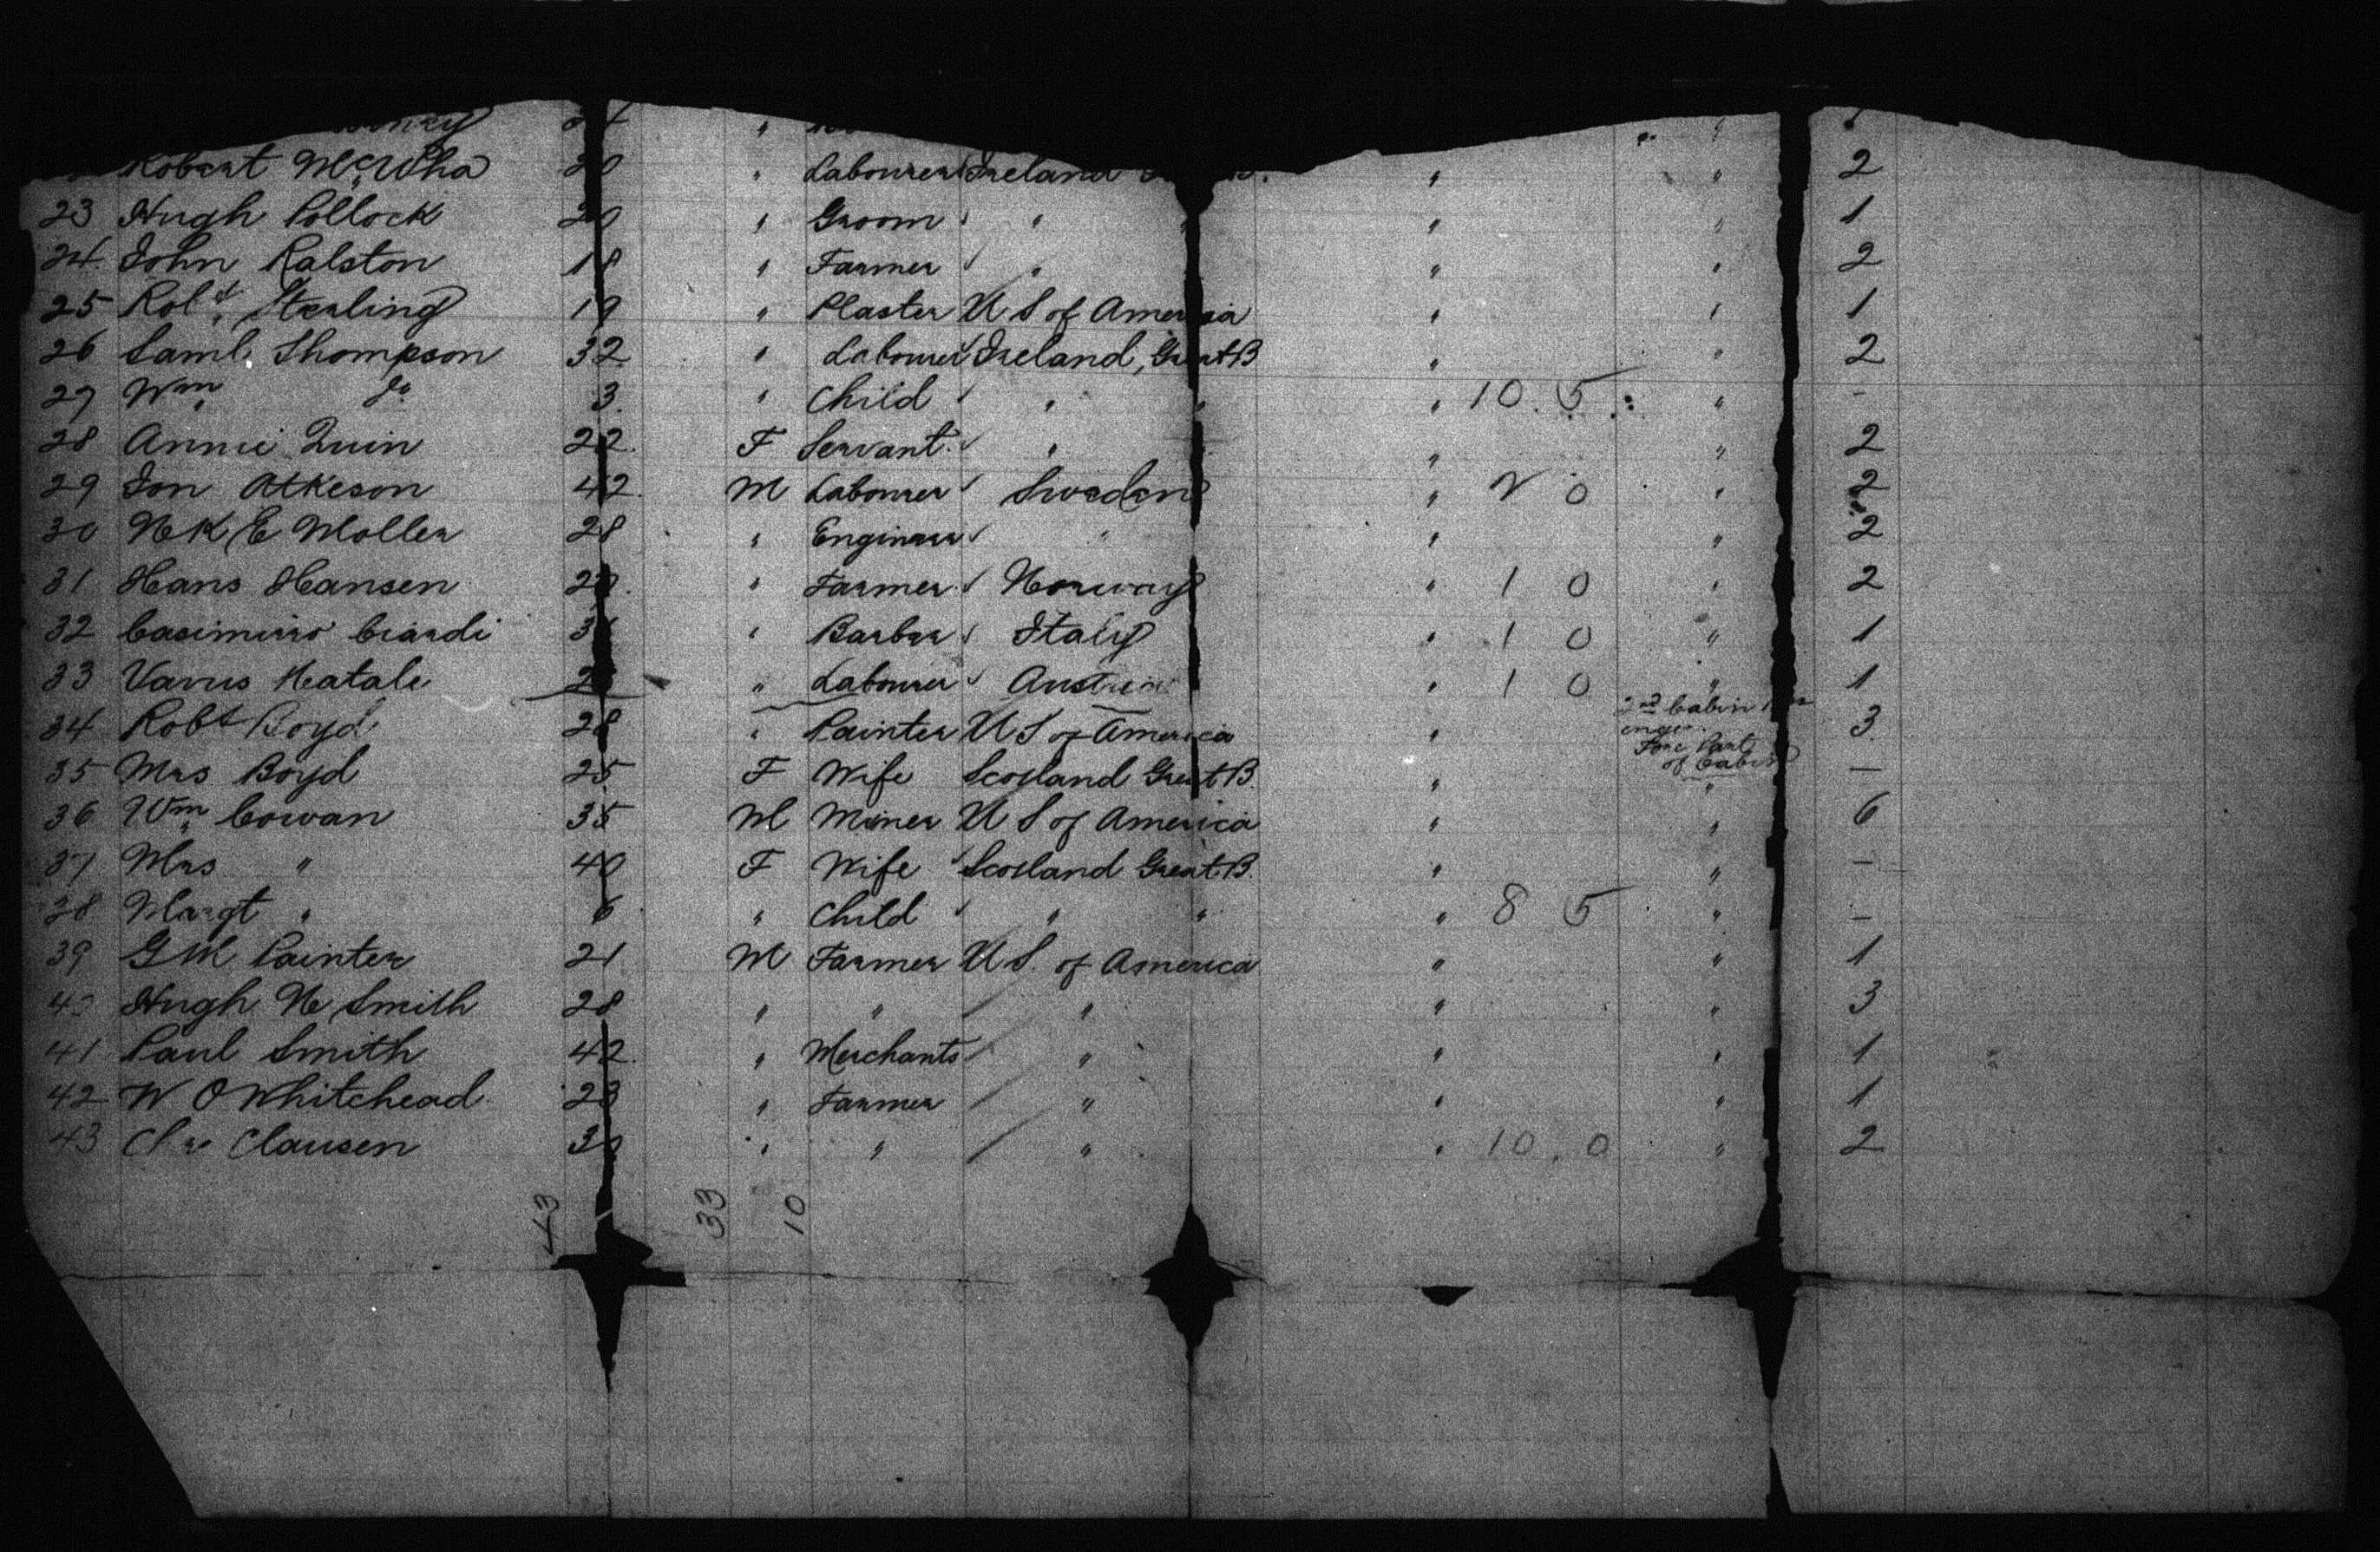 Robert McWha 20 " Labourer Ireland " " 2
23 Hugh Pollock 20 " Groom " " " " 1
24 John Ralston 18 " Farmer " " " 2
25 Robt Sterling 19 " Plaster U S of America " " 1
26 Saml Thompson 32 " Labourer Ireland, Great B " " 2
27 Wm Do 3 " Child " " " 10.5 " -
28 Annie Quin 22 F Servant " " " 2
29 Jon Atkeson 42 M Labourer Sweden " 0 " 2
30 N K E Moller 28 " Engineer " " " 2
31 Hans Hansen " Farmer Norway " 1 0 " 2
32 Casimirro Ciardi " Barber Italy " 1 0 " 1
33 Varus Natale " Labourer Austria " 1 0 " 1
34 Robt Boyd 28 " Painter U S of America " 2nd Cabin 3
Fore Part
of Cabin
35 Mrs Boyd 25 F Wife Scotland Great B. " " -
36 Wm Cowan 35 M Miner U S of America " " 6
37 Mrs " 40 F Wife Scotland Great B. " " -
38 Margt " 6 " Child " " " 8 5 " -
39 G M Painter 21 M Farmer U S. of America " " 1
40 Hugh N Smith 28 " " " " " 3
41 Paul Smith 42 " Merchants " " " 1
42 W O Whitehead 23 " Farmer " " " 1
43 Chr Clausen 30 " " " " 10.0 " 2
43 33 10